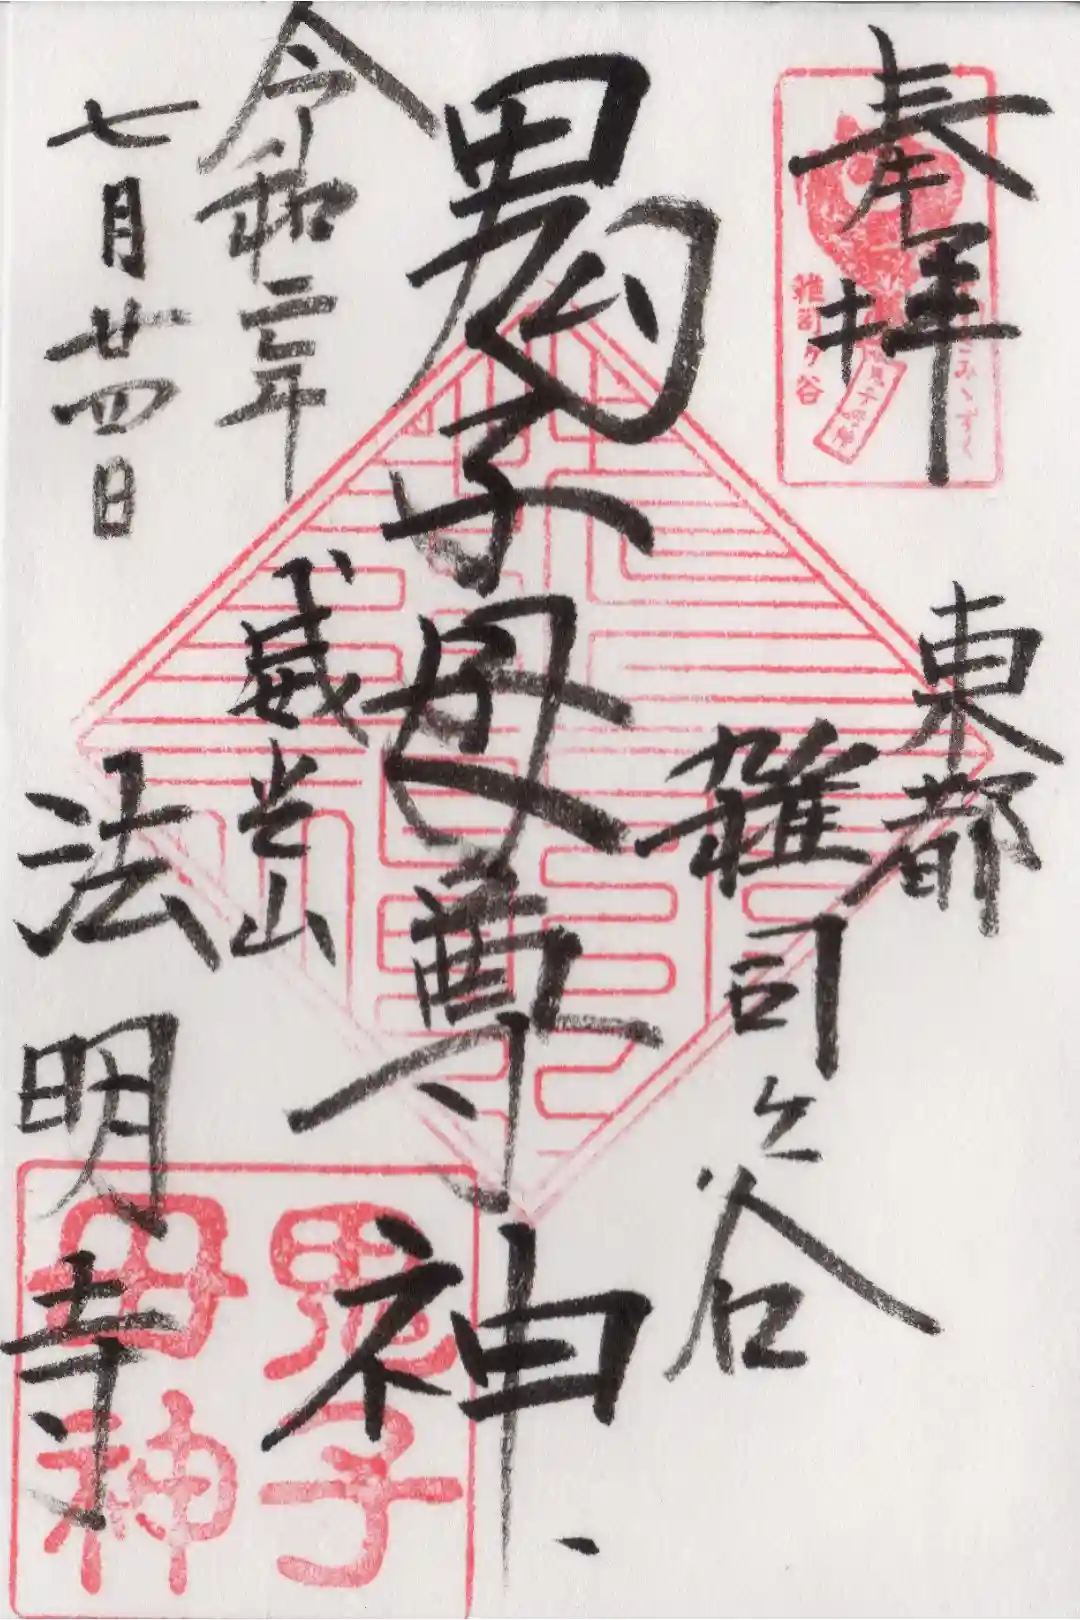 奉拝
東都
雑司ヶ谷
鬼子母尊神
令和三年
七月廿四日
威光山
法明寺
雑司ヶ谷
鬼子母神
鬼子
母神